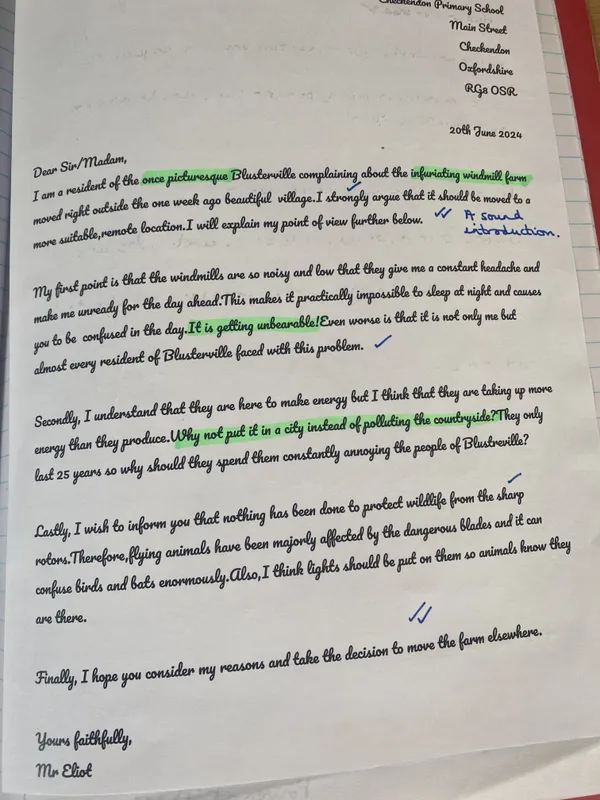 Checkendon Primary School
Main Street
Checkendon
Oxfordshire
RG8 0SR
20th June 2024
Dear Sir/Madam,
I am a resident of the once picturesque Blusterville complaining about the infuriating windmill farm
moved right outside the one week ago beautiful village.I strongly argue that it should be moved to a
more suitable,remote location.I will explain my point of view further below.
A sound
introduction.
My first point is that the windmills are so noisy and low that they give me a constant headache and
make me unready for the day ahead.This makes it practically impossible to sleep at night and causes
you to be confused in the day.It is getting unbearable!Even worse is that it is not only me but
almost every resident of Blusterville faced with this problem.
Secondly, I understand that they are here to make energy but I think that they are taking up more
energy than they produce.Why not put it in a city instead of polluting the countryside?They only
last 25 years so why should they spend them constantly annoying the people of Blustreville?
Lastly, I wish to inform you that nothing has been done to protect wildlife from the sharp
rotors.Therefore,flying animals have been majorly affected by the dangerous blades and it can
confuse birds and bats enormously.Also,I think lights should be put on them so animals know they
are there.
Finally, I hope you consider my reasons and take the decision to move the farm elsewhere.
Yours faithfully,
Mr Eliot